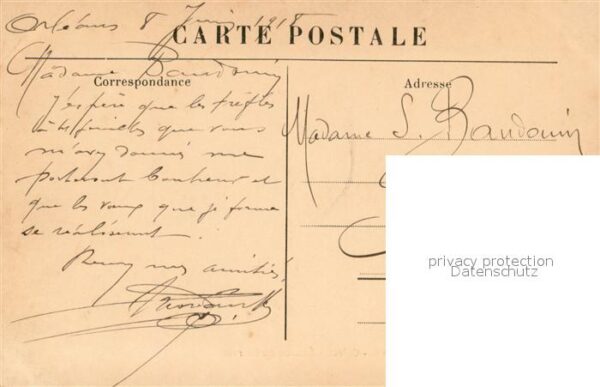 Orléans 8 Juin 1915
CARTE POSTALE
Madame Baudouin
Correspondance
j'espère que les trèfles
que vous
m'avez donnés me
porteront bonheur et
que les vœux que je forme
se réalisent.
mes amitiés
Adresse
Madame S. Baudouin
privacy protection
Datenschutz